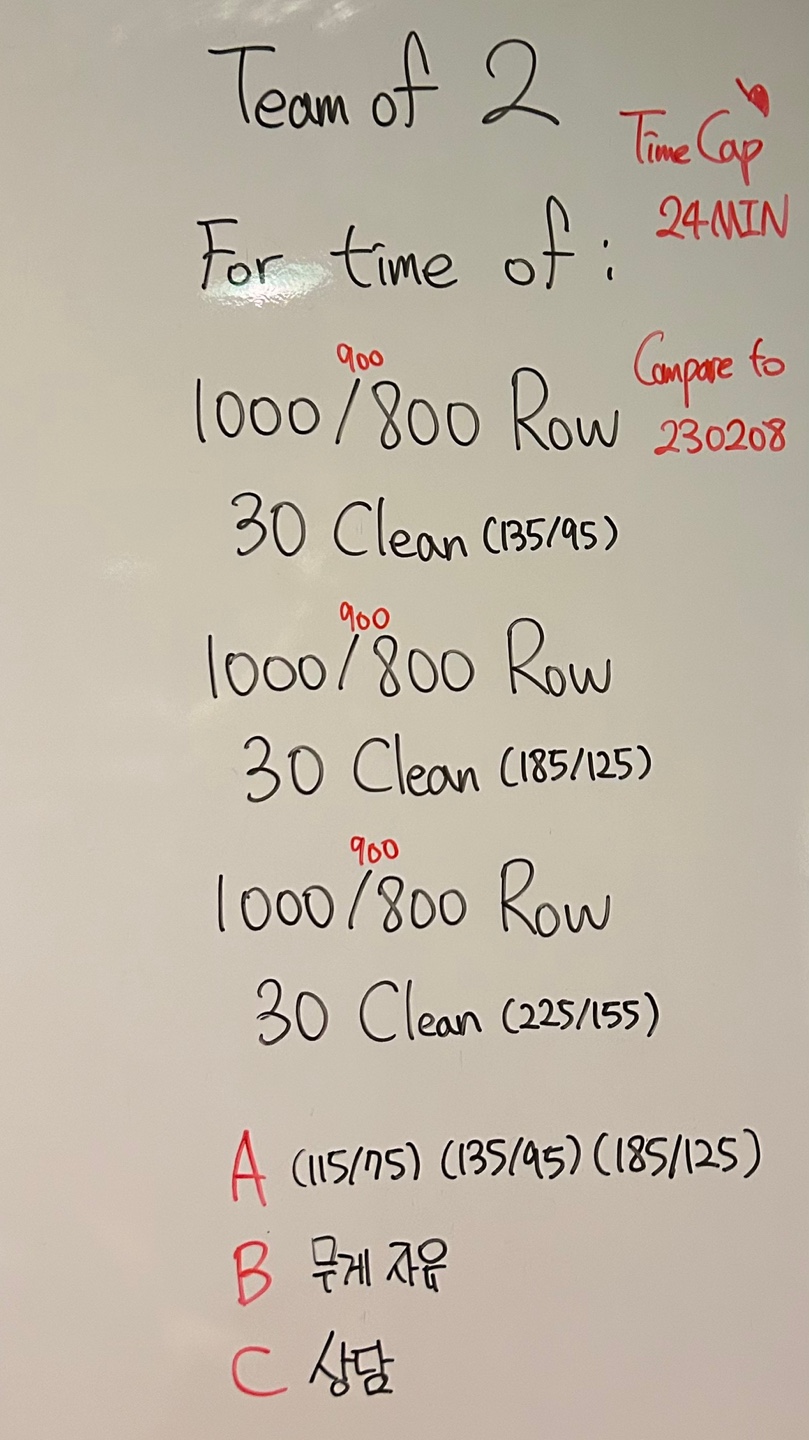 Team of 2
Time Cap
24MIN
For time of :
900
1000/800 Row
Compare to
230208
30 Clean (135/95)
900
1000/800 Row
30 Clean (185/125)
900
1000/800 Row
30 Clean (225/155)
A (115/75) (135/95) (185/125)
B 무게 자유
C 상담